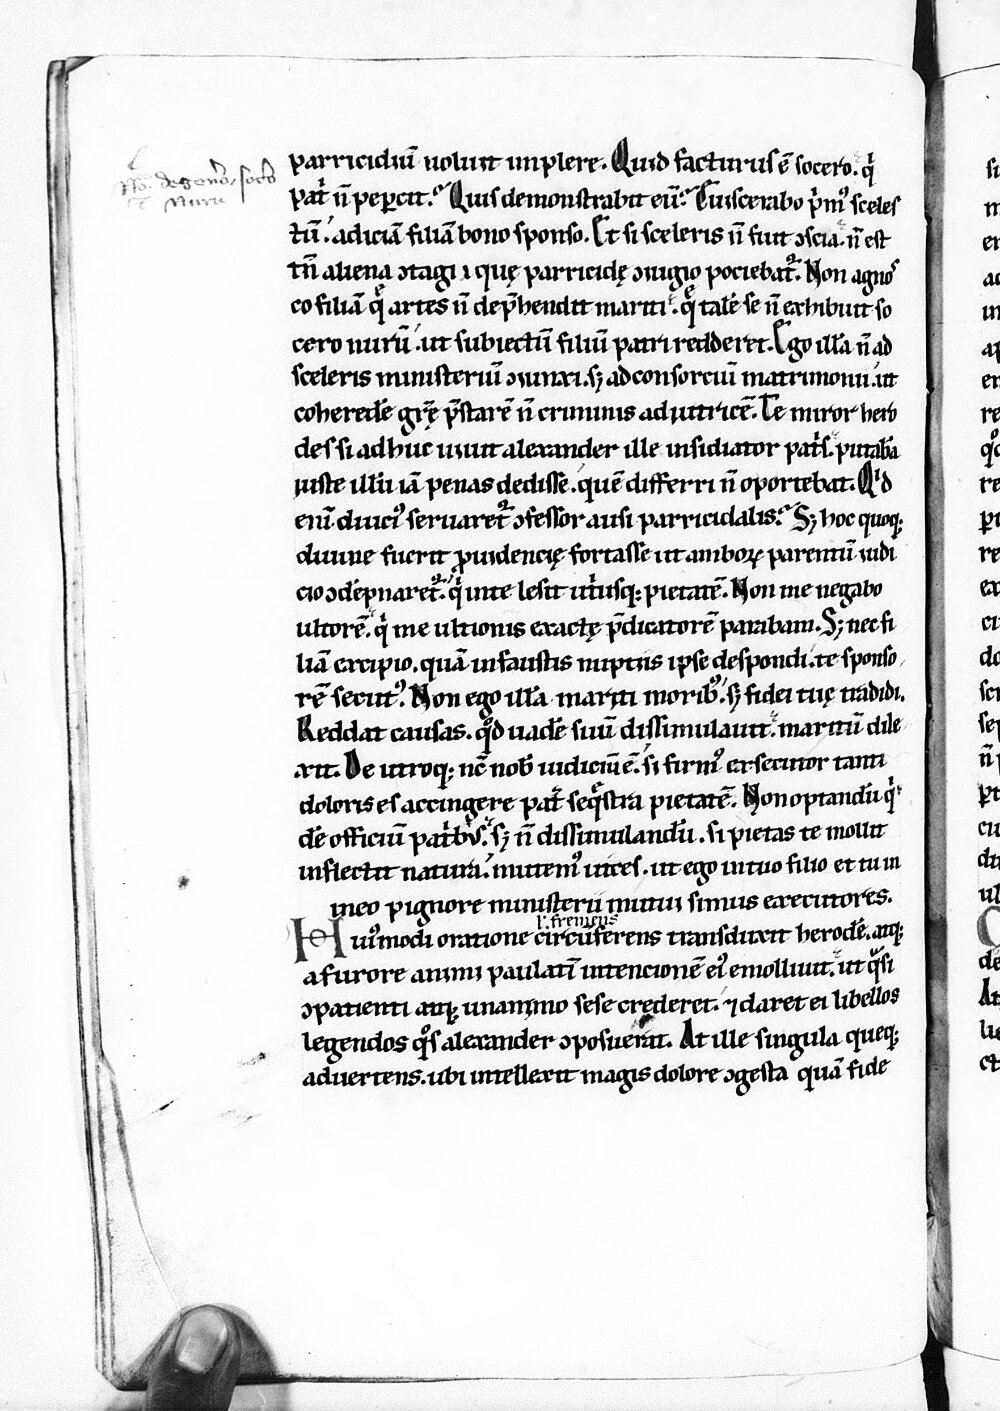 parricidiū uoluit implere. Quid facturus ē socero. q̇
pat̍ n̄ pep̱cit. Quis demonstrabit eū. Euiscerabo p̍mꝰ sceles
tū. adiciā filiā bono sponso. Et si sceleris n̄ fuit ɔscia. n̄ est
tn̄ aliena ɔtagii quę parricidę ɔiugio pociebat᷑. Non agnos
co filiā q̄ artes n̄ dep̄hendit mariti. q̄ talē se n̄ exhibuit so
cero nurū. ut subiectū filiū patri redderet. Ego illā n̄ ad
sceleris ministeriū ɔiunxi. sꝫ ad consorciū matrimonii. ut
coheredē gr̄ę p̄starē n̄ criminis adiutricē. Te miror hero
des si adhuc uiuit alexander ille insidiator pat̍s. putabā
iuste illū iā penas dedisse. quē differri n̄ oportebat. Qͥd
enī diuciꝰ seruaret᷑ ɔfessor ausi parricidalis. Sꝫ hoc quoqꝫ
diuine fuerit ꝓuidencię fortasse ut amboꝝ parentū iudi
cio ɔdēpnaret᷑. q̇ in te lesit ut̍usqꝫ pietatē. Non me negabo
ultorē. q̇ me ultionis exactę p̄dicatorē parabam. Sꝫ nec fi
liā excipio. quā infaustis nuptiis ipse despondi. te sponso
rē secutꝰ. Non ego illā mariti moribꝰ. sꝫ fidei tuę tradidi.
Reddat causas. qͦd uadē suū dissimulauit. maritū dile
xit. De utroqꝫ nc̄ nob̄ iudiciū ē. si firmꝰ exsecutor tanti
doloris es accingere pat̍ seq̄stra pietatē. Non optandū q̇
dē officiū pat̍bꝰ. sꝫ n̄ dissimulandū. si pietas te mollit
inflectit natura. mutemꝰ uices. ut ego in tuo filio et tu in
meo pignore ministerii mutui simus executores.
l'. fremens
Huiꝰmodi oratione circūferens transduxit herodē. atqꝫ
a furore animi paulatī intencionē eiꝰ emolliuit. ut q̄si
ɔpatienti atqꝫ unanimo sese crederet. ⁊ daret ei libellos
legendos qͦs alexander ɔposuerat. At ille singula queqꝫ
aduertens. ubi intellexit magis dolore ɔgesta quā fide